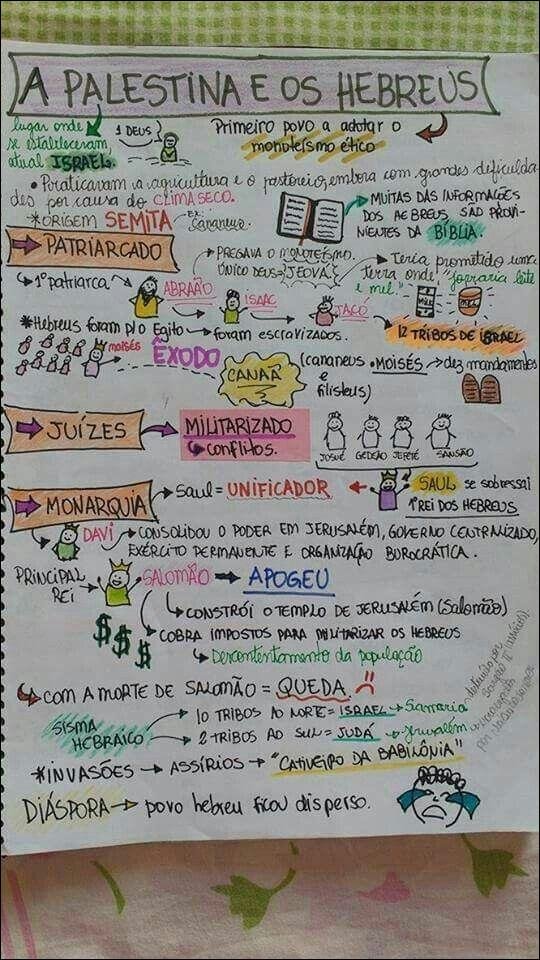 A PALESTINA E OS HEBREUS
lugar onde
se estabeleceram
atual ISRAEL.
1 DEUS
Primeiro povo a adotar o
monoteísmo ético
• Praticavam a agricultura e o pastoreio, embora com grandes dificulda
des por causa do CLIMA SECO.
*ORIGEM SEMITA EX: Cananeus.
MUITAS DAS INFORMAÇÕES
DOS HEBREUS SÃO PROVI-
NIENTES DA BÍBLIA
PATRIARCADO
PREGAVA O MONOTEÍSMO.
ÚNICO DEUS = JEOVÁ
Teria prometido uma
terra onde "jorraria leite
e mel"
1º patriarca
ABRAÃO
ISAAC
JACÓ
12 TRIBOS DE ISRAEL
*Hebreus foram p/ o Egito → foram escravizados.
moisés
ÊXODO
CANAÃ
(cananeus
e
filisteus)
• MOISÉS → dez mandamentos
JUÍZES
MILITARIZADO
conflitos.
JOSUÉ GEDEÃO JEFETÉ SANSÃO
MONARQUIA
Saul = UNIFICADOR
SAUL se sobressai
1º REI DOS HEBREUS
DAVI → CONSOLIDOU O PODER EM JERUSALÉM, GOVERNO CENTRALIZADO,
EXÉRCITO PERMANENTE E ORGANIZAÇÃO BUROCRÁTICA.
PRINCIPAL
REI
SALOMÃO → APOGEU
CONSTRÓI O TEMPLO DE JERUSALÉM (Salomão)
$$$
COBRA IMPOSTOS PARA MILITARIZAR OS HEBREUS
Descontentamento da população
COM A MORTE DE SALOMÃO = QUEDA.
SISMA
HEBRAICO
10 TRIBOS AO NORTE = ISRAEL → Samaria
2 TRIBOS AO SUL = JUDÁ → Jerusalém
*INVASÕES → ASSÍRIOS → "CATIVEIRO DA BABILÔNIA"
DIÁSPORA → povo hebreu ficou disperso.